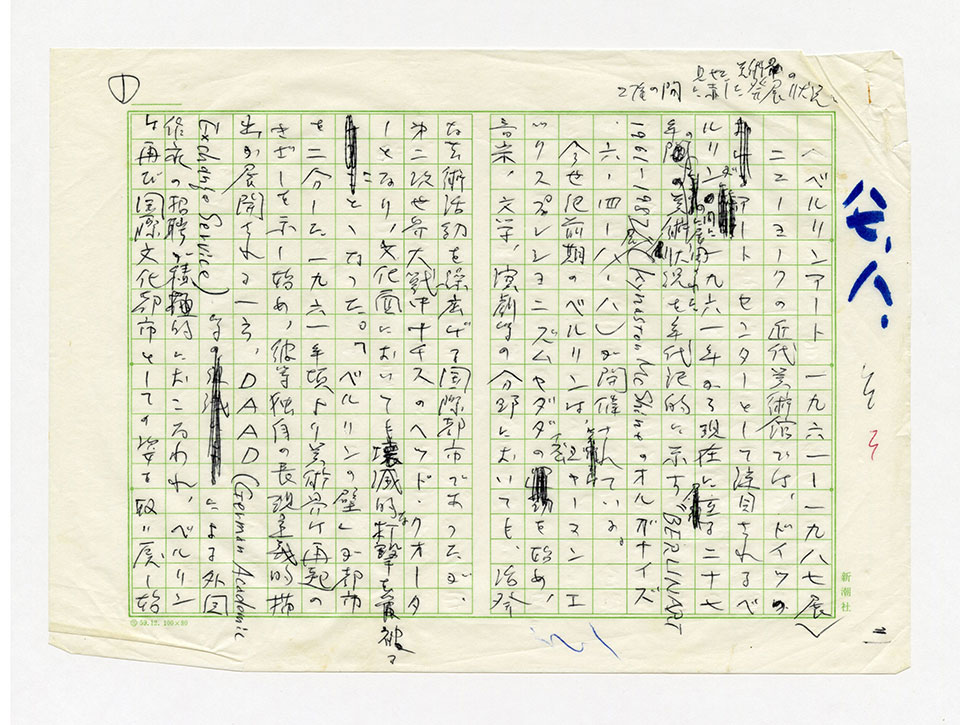 ①
の間に示した発展の状況
ベルリンアート 一九六一—一九八七展
ニューヨークの近代美術館では、ドイツの
アートセンターとして注目されるべ
ルリンの 一九六一年から現在に至る二十七
年間の美術状況を年代記的に示す"BERLINART
1961-1987展"(Kynaston McShineのオルガナイズ
六・四—八・八)が開催されている。
今世紀前期のベルリンは、 エ
クスプレッショニズムやダダの を始め、
音楽、文学、演劇等の分野においても、活発
な芸術活動を繰広げる国際都市であったが、
第二次世界大戦中ナチスのヘッド・クオータ
ーとなり、文化面においても壊滅的な打撃を
となった。「ベルリンの壁」が都市
を二分した一九六一年頃より美術界は再起の
きざしを示し始め、彼等独自の表現主義的描
出が展開される一方、DAAD(German Academic
Exchange Service) 等の による外国
作家の招聘が積極的におこなわれ、ベルリン
は再び国際文化都市としての姿を取り戻し始
新潮社